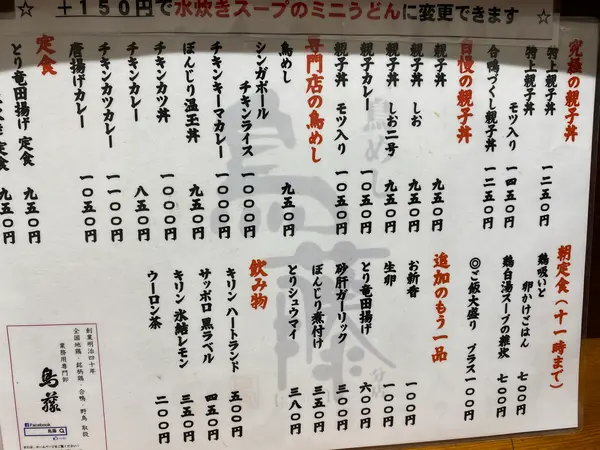 ☆ +150円で水炊きスープのミニうどんに変更できます ☆
究極の親子丼
特上親子丼 一二五〇円
特上親子丼 モツ入り 一四五〇円
合鴨づくし親子丼 一二五〇円
自慢の親子丼
親子丼 九五〇円
親子丼 しお 九五〇円
親子丼 しお二号 九五〇円
親子カレー 一〇五〇円
親子丼 モツ入り 一〇五〇円
専門店の鳥めし
鳥めし 九五〇円
シンガポール チキンライス 一〇〇〇円
チキンキーマカレー 一〇〇〇円
ぼんじり温玉丼 九五〇円
チキンカツ丼 一〇〇〇円
チキンカツ 八五〇円
チキンカツカレー 一一〇〇円
唐揚げカレー 一〇五〇円
定食
とり竜田揚げ 定食 九五〇円
定食 九五〇円
朝定食(十一時まで)
鶏吸いと 卵かけごはん 七〇〇円
鶏白湯スープの雑炊 七〇〇円
◎ご飯大盛り プラス 一〇〇円
追加のもう一品
お新香 一〇〇円
生卵 一〇〇円
とり竜田揚げ 六〇〇円
砂肝ガーリック 三〇〇円
ぼんじり煮付け 三五〇円
とりシュウマイ 三八〇円
飲み物
キリン ハートランド 五〇〇円
サッポロ 黒ラベル 四五〇円
キリン 氷結レモン 三五〇円
ウーロン茶 二〇〇円
鳥めし
鳥藤
創業明治四十年
全国地鶏・銘柄鶏・合鴨・野鳥 取扱
業務用専門卸
鳥藤
Facebook
鳥藤